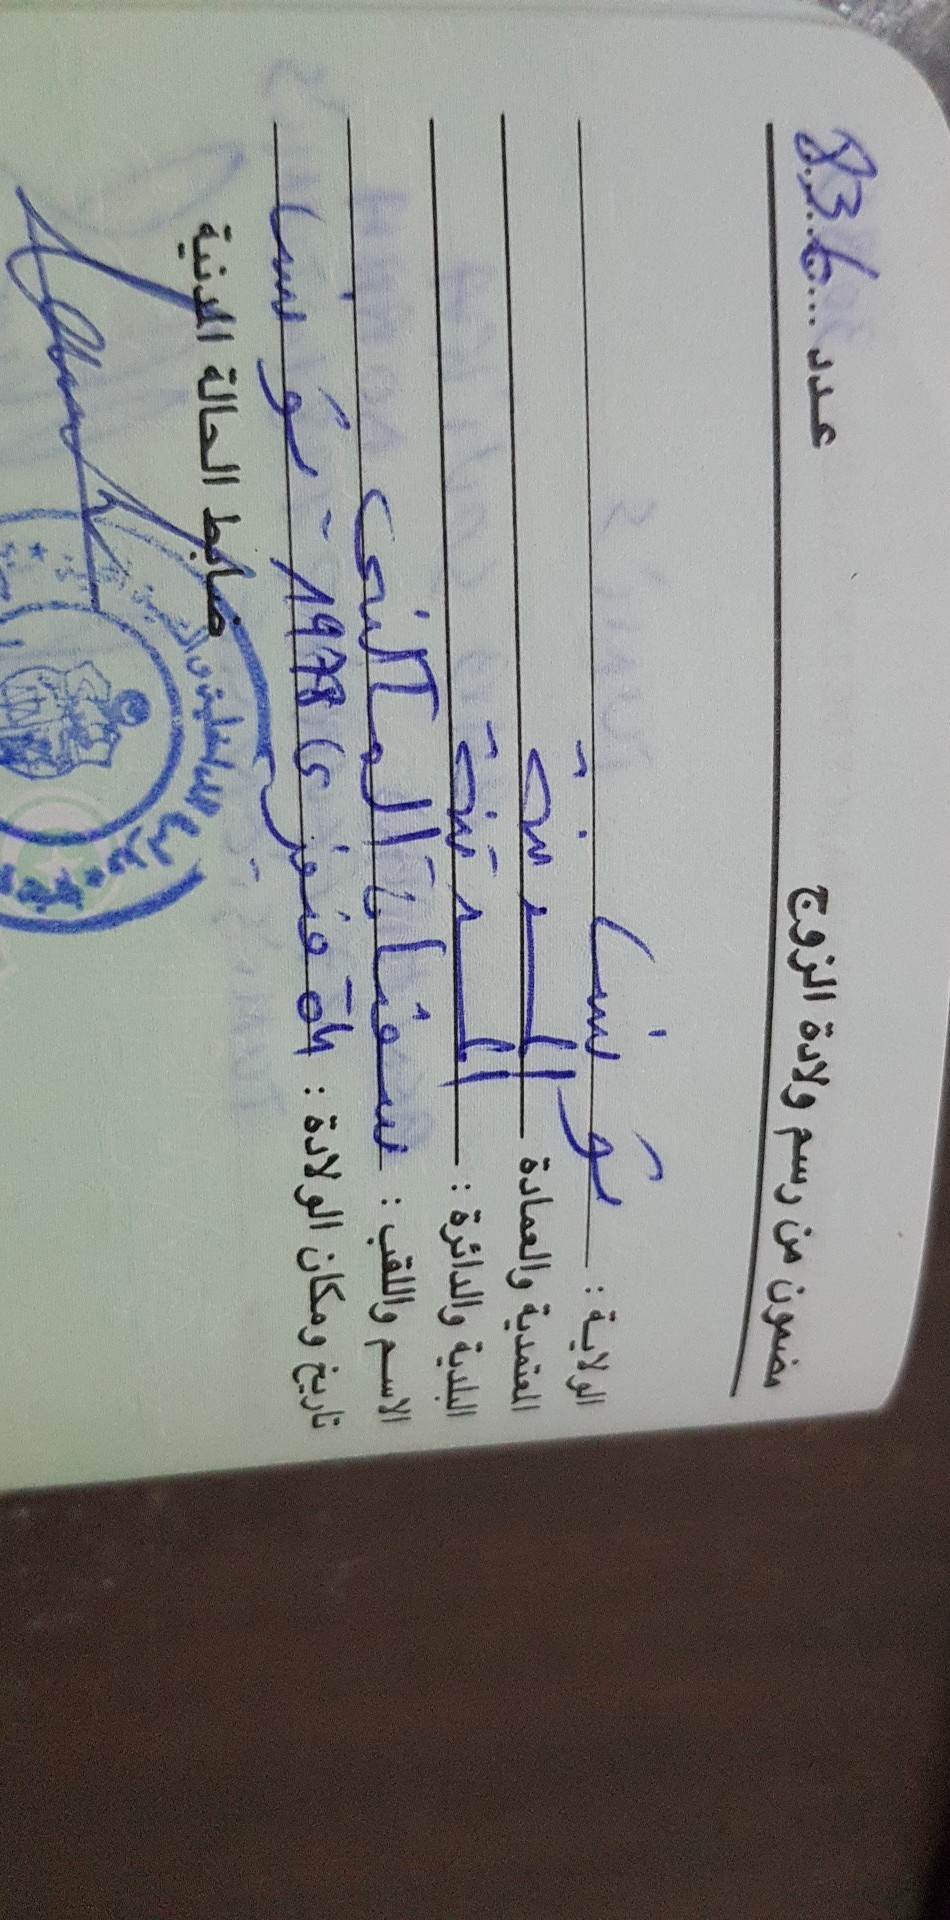 مضمون من رسم ولادة الزوج
عدد
الولاية : تونس
المعتمدية والعمادة المدينة
البلدية والدائرة : المدينة
الاسم واللقب : سفيان
تاريخ ومكان الولادة : فيفري 1978 تونس
ضابط الحالة المدنية